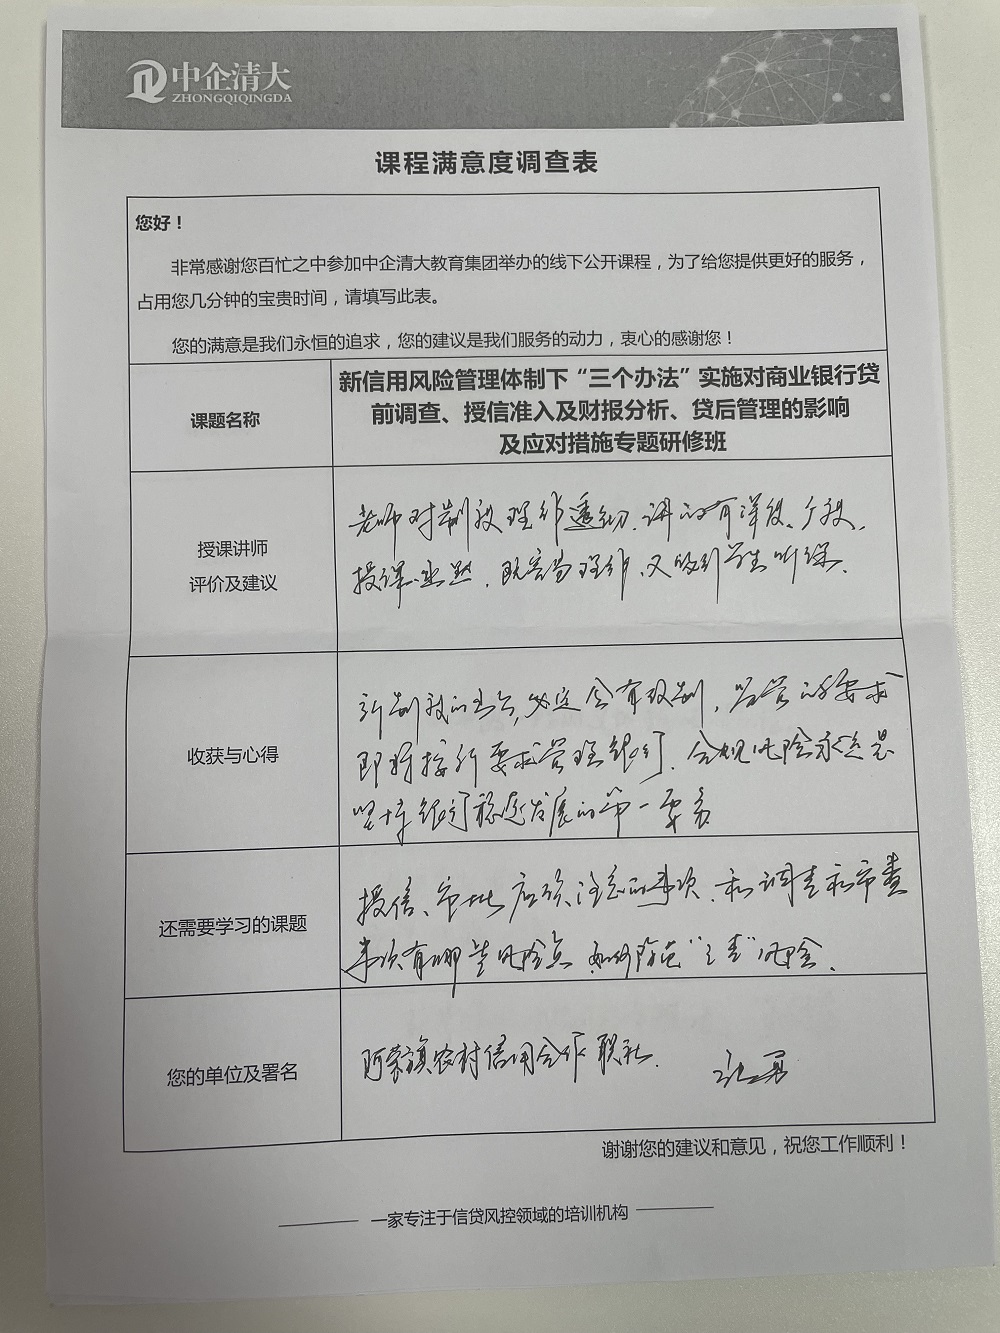 中企清大
ZHONGQIQINGDA
课程满意度调查表
您好！
非常感谢您百忙之中参加中企清大教育集团举办的线下公开课程，为了给您提供更好的服务，
占用您几分钟的宝贵时间，请填写此表。
您的满意是我们永恒的追求，您的建议是我们服务的动力，衷心的感谢您！
课题名称
新信用风险管理体制下“三个办法”实施对商业银行贷
前调查、授信准入及财报分析、贷后管理的影响
及应对措施专题研修班
授课讲师
评价及建议
老师对制度理解透彻、讲的有深度、广度，
授课，既容易理解，又吸引学生听课。
收获与心得
新制度的出台，必定会有改制，监管的要求
即将按新要求管理银行，合规风险永远是
坚持银行稳健发展的第一要务
还需要学习的课题
授信、审批应该注意的事项、和调查和审查
事项有哪些风险点 如何防范“”风险。
您的单位及署名
阿荣旗农村信用合作联社. 勇
谢谢您的建议和意见，祝您工作顺利！
一家专注于信贷风控领域的培训机构